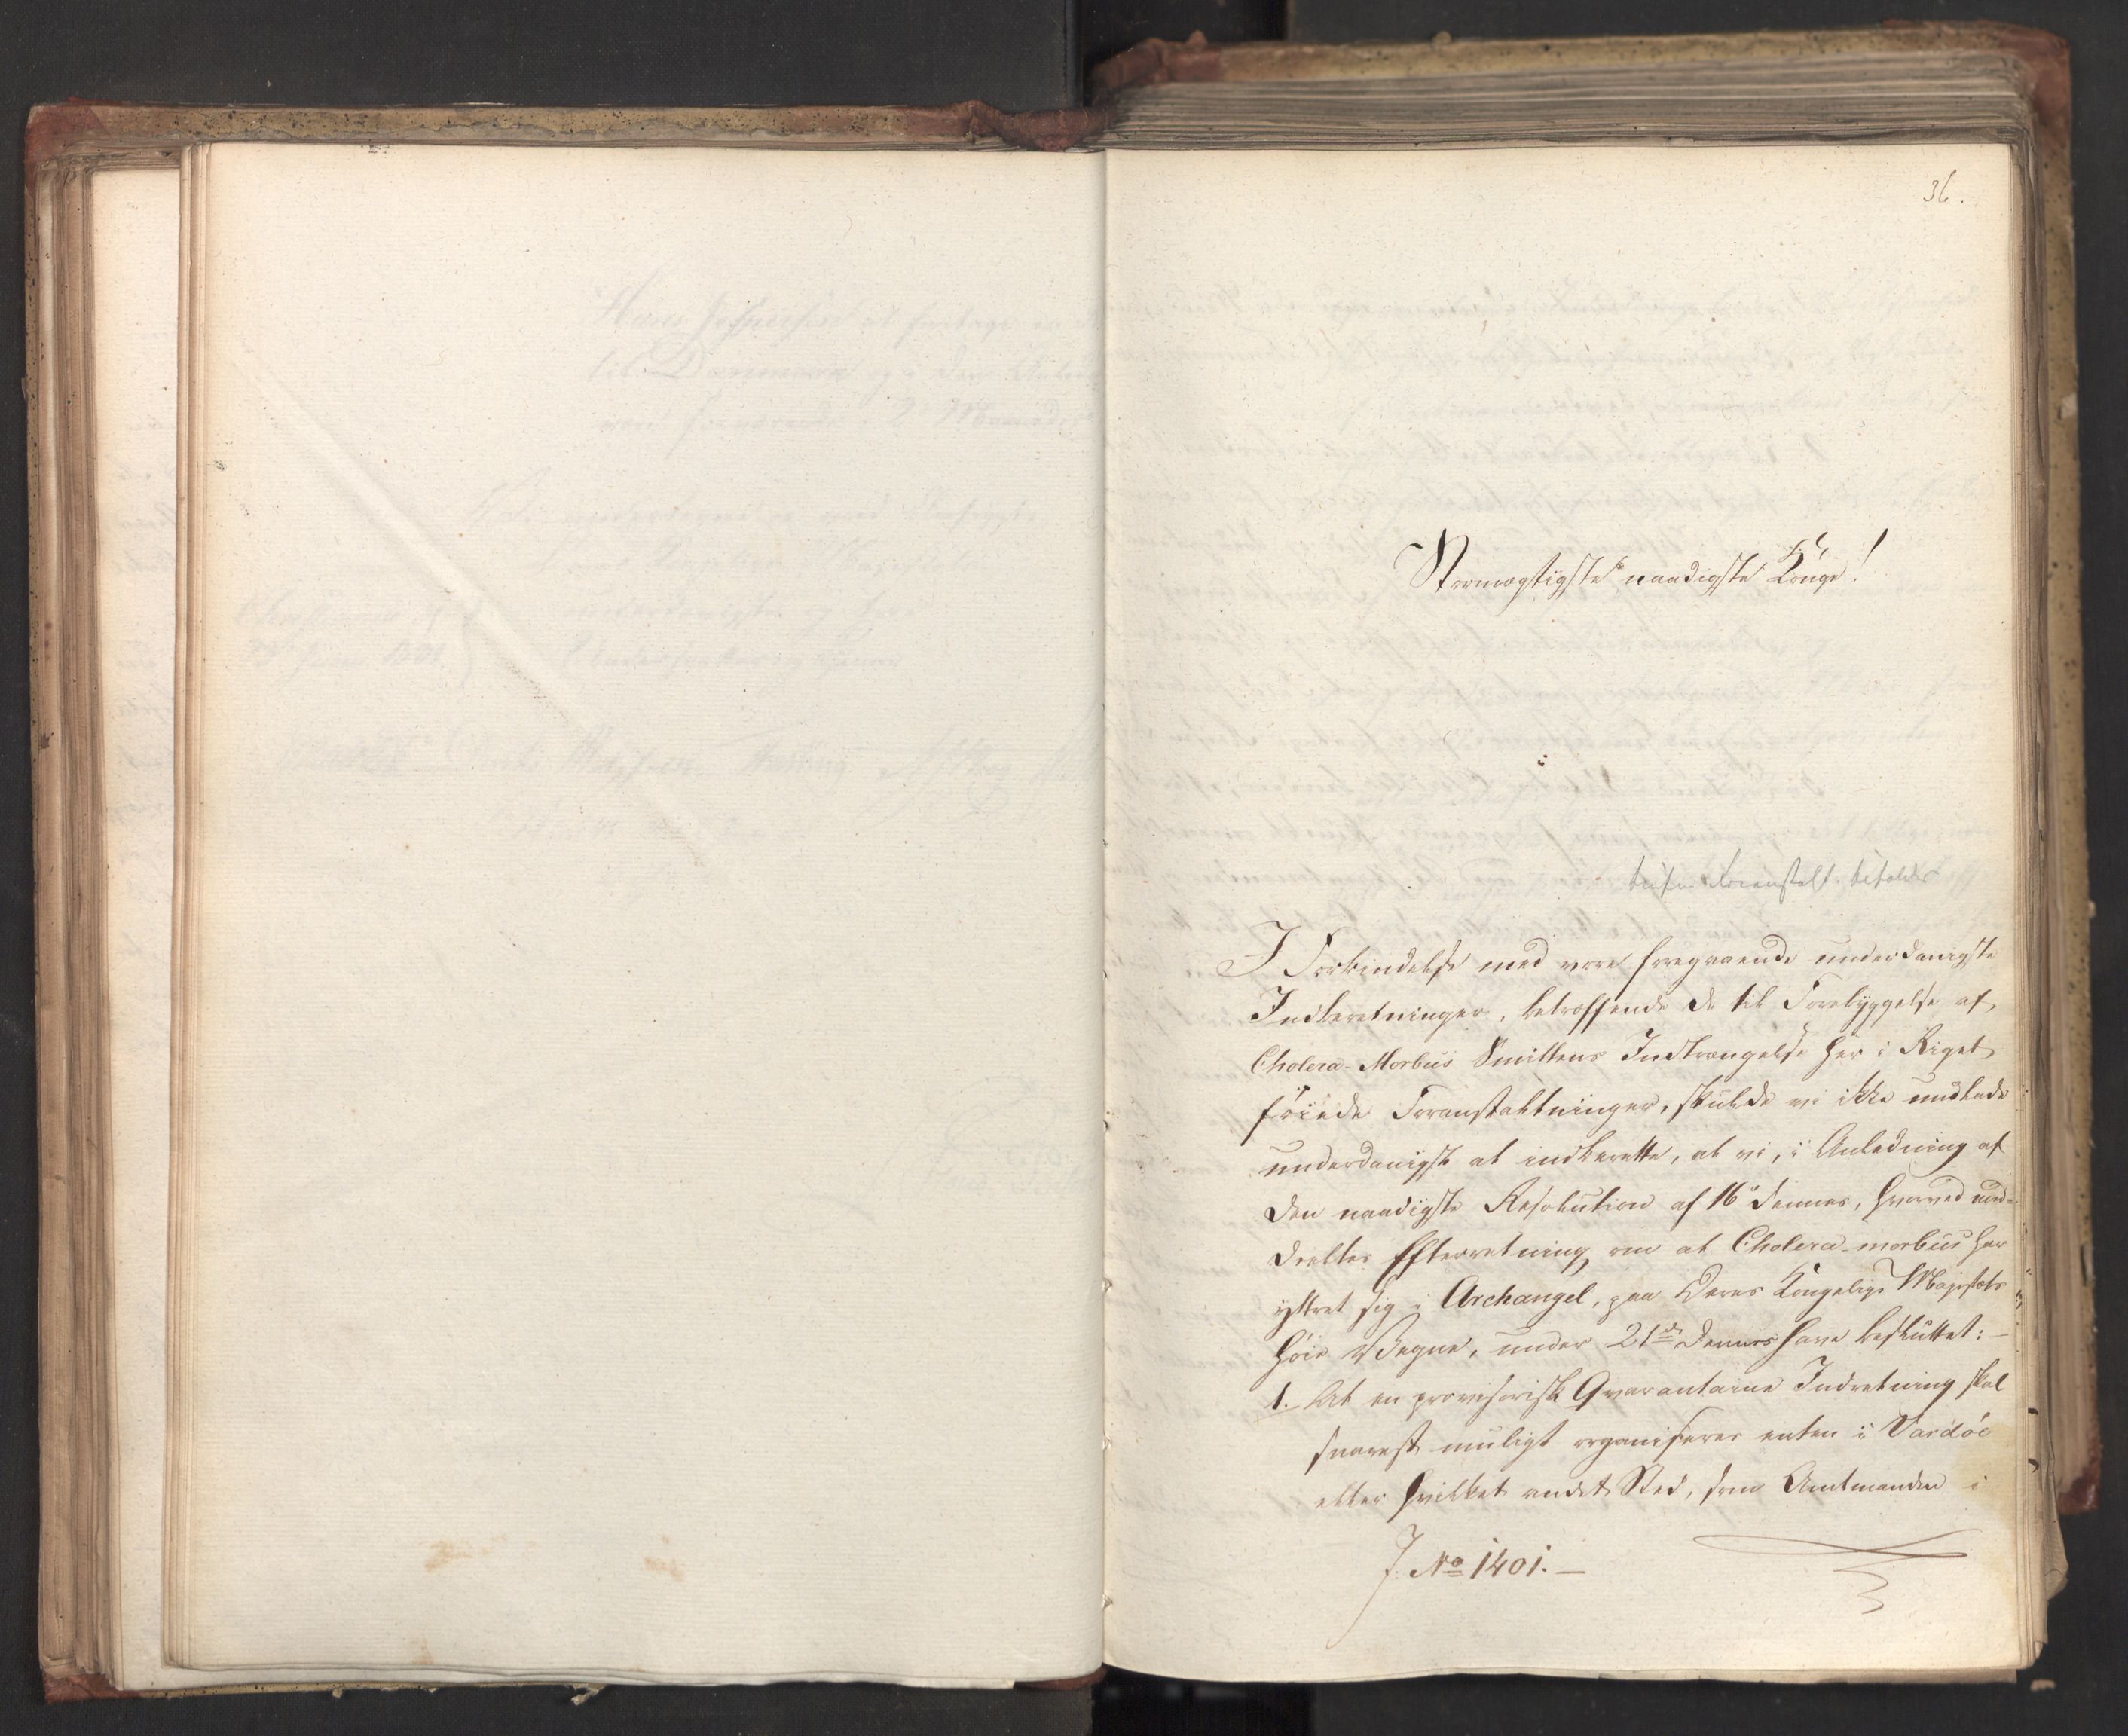 36.
Stormægtigste naadigste Konge!
I Forbindelse med vore foregaaende underdanigste
Indberetninger, betræffende de til Forebyggelse af
Cholera-Morbus Smittens Indtrængelse her i Riget
föiede Foranstaltninger, skulde vi ikke undlade
underdanigst at indberette, at vi, i Anledning af
den naadigste Resolution af 16 dennes, hvorved med-
deeltes Efterretning om at Cholera-morbus har
yttret sig i Archangel, paa Deres Kongelige Majestæts
höie Vegne, under 21de dennes have besluttet: -
1. At en provisorisk Qvarantaine Indretning skal
snarest muligt organiseres enten i Vardöe
eller hvilket andet Sted, som Amtmanden i
J. No 1401. -